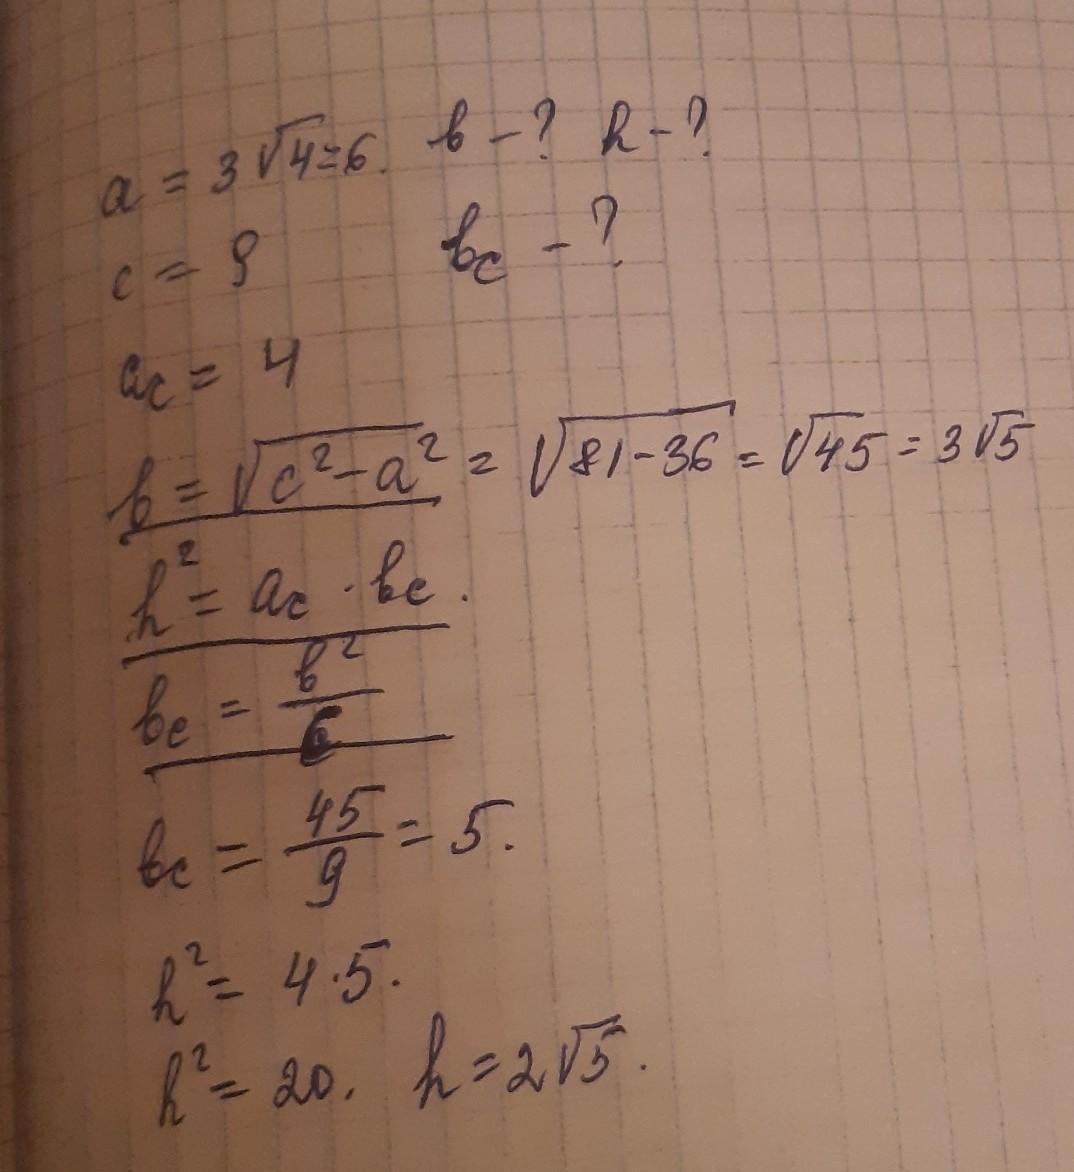 a = 3√4=6. в – ? h – ?
c = 9 вc – ?
ac = 4
в = √c²–a² = √81–36 = √45 = 3√5
h² = ac · вc.
вc = в²/c
вc = 45/9 = 5.
h² = 4·5.
h² = 20. h = 2√5.